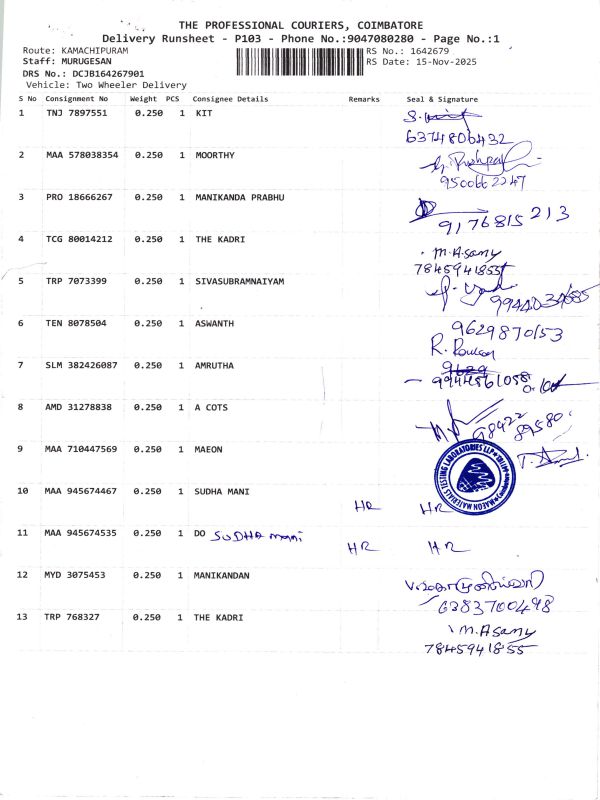 THE PROFESSIONAL COURIERS, COIMBATORE
Delivery Runsheet - P103 - Phone No.:9047080280 - Page No.:1
Route: KAMACHIPURAM RS No.: 1642679
Staff: MURUGESAN RS Date: 15-Nov-2025
DRS No.: DCJB164267901
Vehicle: Two Wheeler Delivery
S No Consignment No Weight PCS Consignee Details Remarks Seal & Signature
1 TNJ 7897551 0.250 1 KIT
6374806432
2 MAA 578038354 0.250 1 MOORTHY
9500662247
3 PRO 18666267 0.250 1 MANIKANDA PRABHU
9176815213
4 TCG 80014212 0.250 1 THE KADRI M.Asamy
7845941855
5 TRP 7073399 0.250 1 SIVASUBRAMNAIYAM
9944034685
6 TEN 8078504 0.250 1 ASWANTH 9629870153
7 SLM 382426087 0.250 1 AMRUTHA
9944561058
8 AMD 31278838 0.250 1 A COTS
98422 89580
9 MAA 710447569 0.250 1 MAEON
MAEON MATERIALS TESTING LABORATORIES LLP
10 MAA 945674467 0.250 1 SUDHA MANI
HR HR
11 MAA 945674535 0.250 1 DO SUDHA mani
HR HR
12 MYD 3075453 0.250 1 MANIKANDAN
6383700498
13 TRP 768327 0.250 1 THE KADRI M.Asamy
7845941855